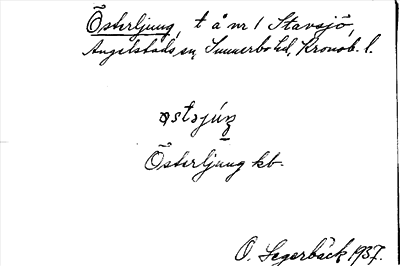 Österljung, t å nr 1 Stavsjö,
Angelstads sn, Sunnerbo hd, Kronob. l.
østəjúŋ
Österljung kb.
O. Segerbäck 1937.